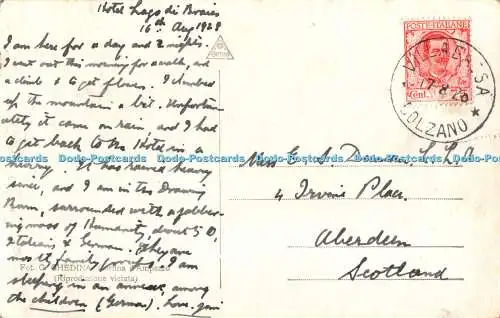 Hotel Lago di Braies
16th Aug 1928
I am here for a day and 2 nights.
I went out this morning for a walk, and
a climb to get flowers. I climbed
up the mountain a bit. Unfortun-
ately it came on rain and I had
to get back to the Hotel in a
hurry. It has rained heavy
since, and I am in the Drawing
Room, surrounded with a jabber-
ing mass of Humanity, about 50,
Italians & German. They are
mostly family parties. I am
sleeping in an annexe, among
the children (German). Love,
Fot. G. GHEDINA - Cortina d'Ampezzo
(Riproduzione vietata)
POSTE ITALIANE
Cent. 75
VILLABASSA
17·8·28
BOLZANO
Miss E. S. L.L.A.
4 Irvine Place.
Aberdeen
Scotland
Dodo-Postcards Dodo-Postcards Dodo-Postcards Dodo-Postcards Dodo-Postcards Dodo-Postcards